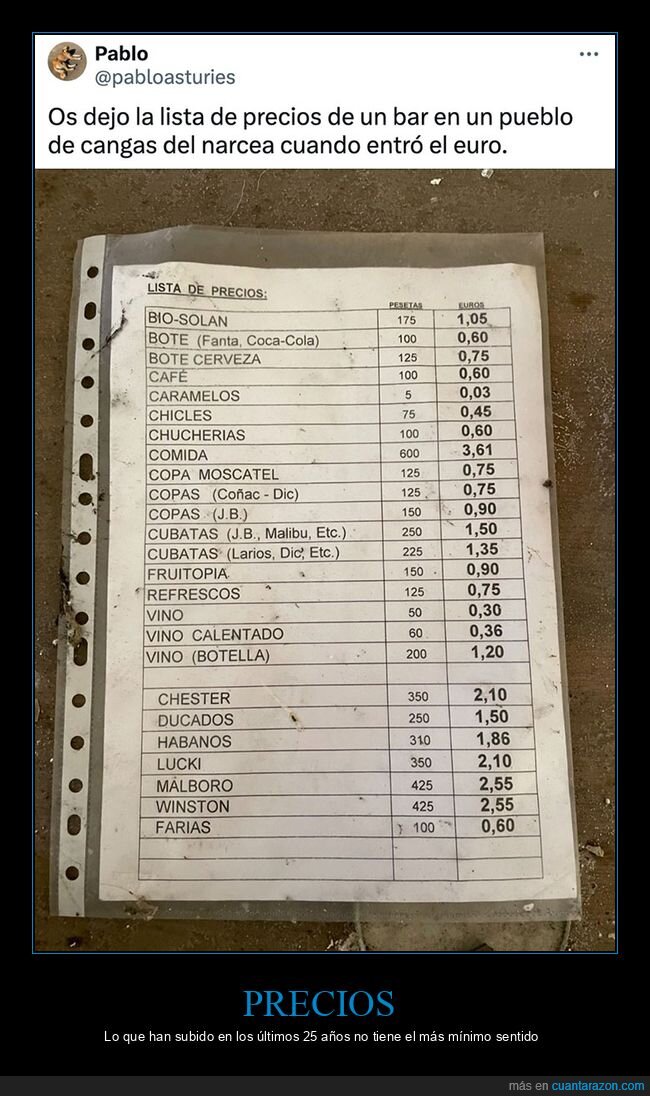 Pablo
@pabloasturies
Os dejo la lista de precios de un bar en un pueblo
de cangas del narcea cuando entró el euro.
LISTA DE PRECIOS:
PESETAS EUROS
BIO-SOLAN 175 1,05
BOTE (Fanta, Coca-Cola) 100 0,60
BOTE CERVEZA 125 0,75
CAFÉ 100 0,60
CARAMELOS 5 0,03
CHICLES 75 0,45
CHUCHERIAS 100 0,60
COMIDA 600 3,61
COPA MOSCATEL 125 0,75
COPAS (Coñac - Dic) 125 0,75
COPAS (J.B.) 150 0,90
CUBATAS (J.B., Malibu, Etc.) 250 1,50
CUBATAS (Larios, Dic, Etc.) 225 1,35
FRUITOPIA 150 0,90
REFRESCOS 125 0,75
VINO 50 0,30
VINO CALENTADO 60 0,36
VINO (BOTELLA) 200 1,20
CHESTER 350 2,10
DUCADOS 250 1,50
HABANOS 310 1,86
LUCKI 350 2,10
MALBORO 425 2,55
WINSTON 425 2,55
FARIAS 100 0,60
PRECIOS
Lo que han subido en los últimos 25 años no tiene el más mínimo sentido
más en cuantarazon.com